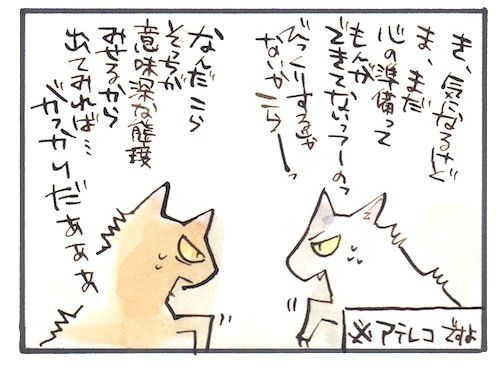 き、気になるけど
ま、まだ
心の準備って
もんが
できてないっつーのっ
びっくりするが
ないかこらーっ
なんだこら
そっちが
意味深な態度
みせるから
出てみれば…
がっかりだぁぁぁ
※アテレコですよ